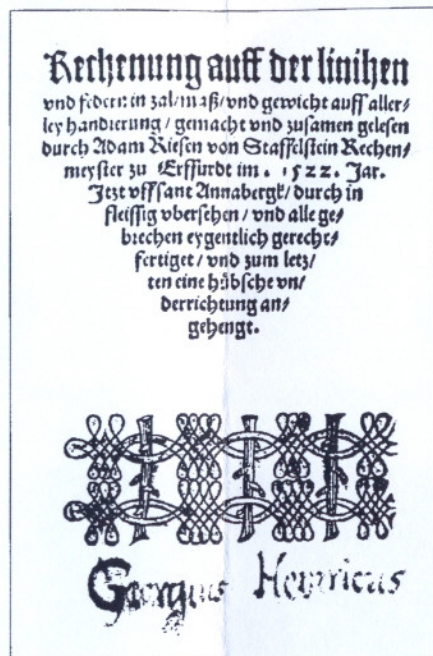 Rechenung auff der linihen
vnd federn in zal/maß/vnd gewicht auff aller⸗
ley handierung / gemacht vnd zusamen gelesen
durch Adam Riesen von Staffelstein Rechen⸗
meyster zu Erffurdt im . 1522. Jar.
Jtzt vffsant Annabergk/ durch in
fleissig vbersehen / vnd alle ge⸗
brechen eygentlich gerecht⸗
fertiget / vnd zum letz⸗
ten eine hübsche vn⸗
derrichtung an⸗
gehengt.
Georgius Henricus